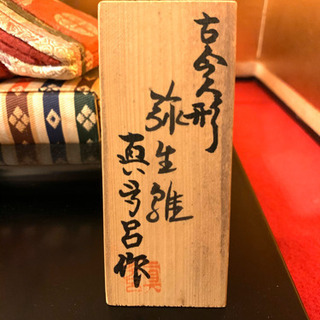 古今人形
弥生雛
真多呂作